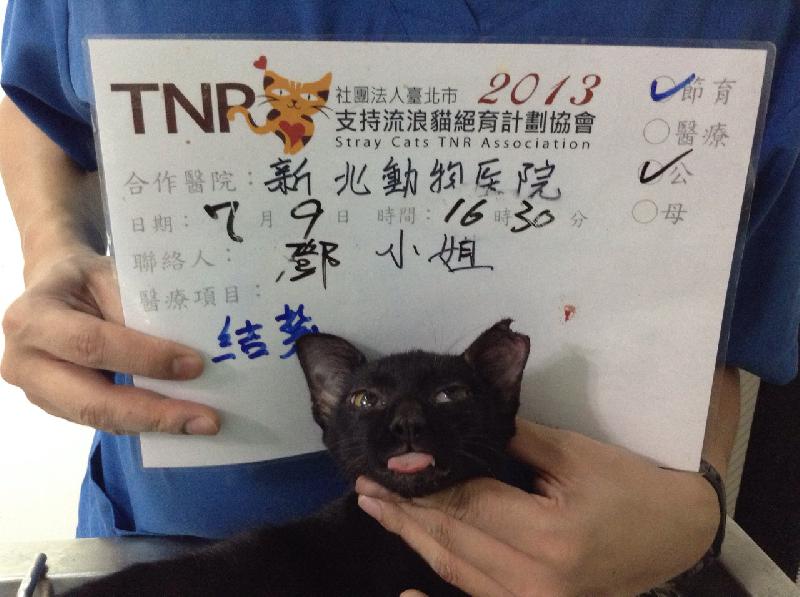 TNR 社團法人臺北市 2013
支持流浪貓絕育計劃協會
Stray Cats TNR Association
節育
醫療
公
母
合作醫院：新北動物医院
日期：7月9日 時間：16時30分
聯絡人：鄧小姐
醫療項目：
結紮